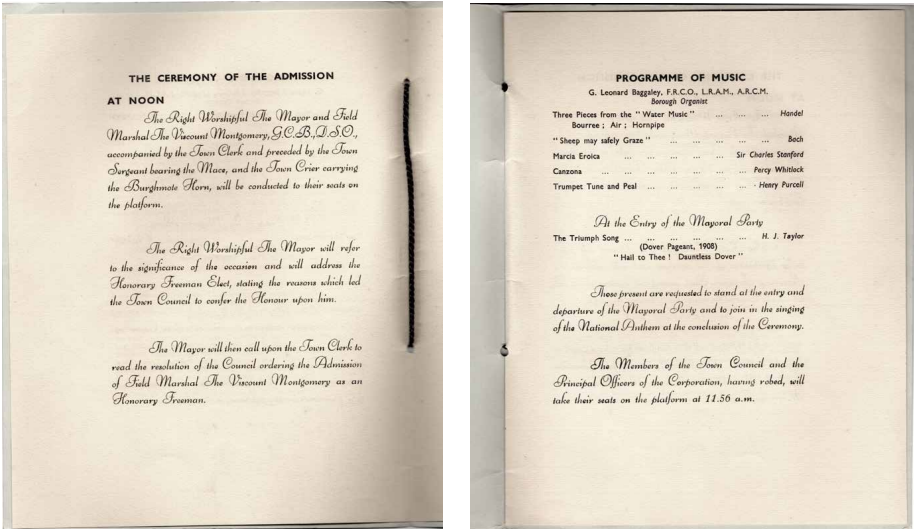 THE CEREMONY OF THE ADMISSION
AT NOON
The Right Worshipful The Mayor and Field
Marshal The Viscount Montgomery, G.C.B., D.S.O.,
accompanied by the Town Clerk and preceded by the Town
Sergeant bearing the Mace, and the Town Crier carrying
the Burghmote Horn, will be conducted to their seats on
the platform.
The Right Worshipful The Mayor will refer
to the significance of the occasion and will address the
Honorary Freeman Elect, stating the reasons which led
the Town Council to confer the Honour upon him.
The Mayor will then call upon the Town Clerk to
read the resolution of the Council ordering the Admission
of Field Marshal The Viscount Montgomery as an
Honorary Freeman.
PROGRAMME OF MUSIC
G. Leonard Baggaley, F.R.C.O., L.R.A.M., A.R.C.M.
Borough Organist
Three Pieces from the "Water Music" ... ... ... Handel
Bourree ; Air ; Hornpipe
"Sheep may safely Graze" ... ... ... ... ... Bach
Marcia Eroica ... ... ... ... ... Sir Charles Stanford
Canzona ... ... ... ... ... ... ... Percy Whitlock
Trumpet Tune and Peal ... ... ... ... ... Henry Purcell
At the Entry of the Mayoral Party
The Triumph Song ... ... ... ... ... ... H. J. Taylor
(Dover Pageant, 1908)
"Hail to Thee ! Dauntless Dover"
Those present are requested to stand at the entry and
departure of the Mayoral Party and to join in the singing
of the National Anthem at the conclusion of the Ceremony.
The Members of the Town Council and the
Principal Officers of the Corporation, having robed, will
take their seats on the platform at 11.56 a.m.